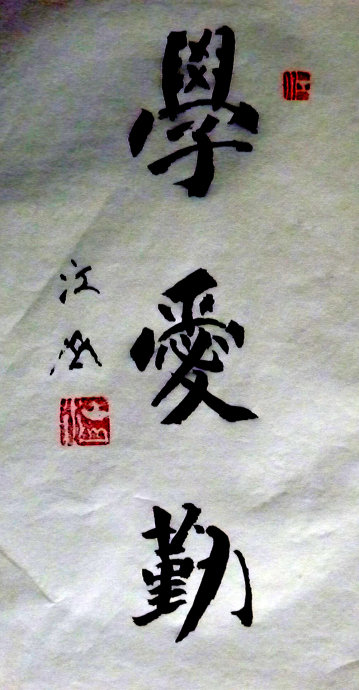 學愛勤
江